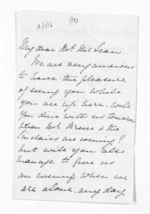 My dear Mr McLean
We are very anxious
to have the pleasure
of seeing you while
you are up here. Will
you dine with us tomorrow
when Mr &
are coming?
but will you also
manage to give us
an evening when we
are alone, any day